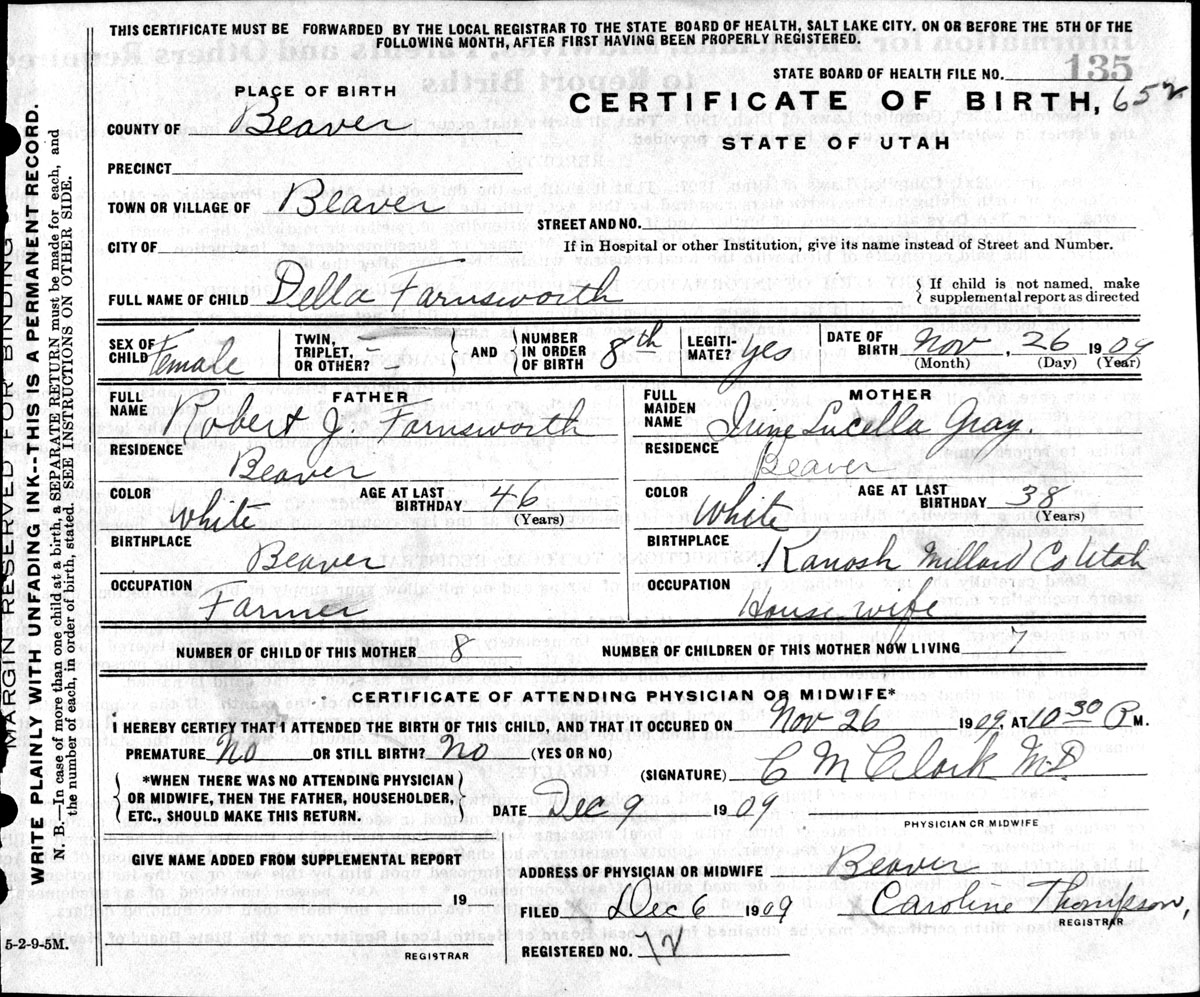 THIS CERTIFICATE MUST BE FORWARDED BY THE LOCAL REGISTRAR TO THE STATE BOARD OF HEALTH, SALT LAKE CITY, ON OR BEFORE THE 5TH OF THE
FOLLOWING MONTH, AFTER FIRST HAVING BEEN PROPERLY REGISTERED.
STATE BOARD OF HEALTH FILE NO. 135
PLACE OF BIRTH
CERTIFICATE OF BIRTH, 652
COUNTY OF Beaver
STATE OF UTAH
PRECINCT
TOWN OR VILLAGE OF Beaver
STREET AND NO.
CITY OF
If in Hospital or other Institution, give its name instead of Street and Number.
FULL NAME OF CHILD Della Farnsworth
If child is not named, make
supplemental report as directed
SEX OF CHILD Female
TWIN, TRIPLET, OR OTHER?
AND
NUMBER IN ORDER OF BIRTH 8th
LEGITI- MATE? Yes
DATE OF BIRTH Nov, 26 1909
(Month) (Day) (Year)
FATHER
FULL NAME Robert J. Farnsworth
RESIDENCE
Beaver
COLOR White
AGE AT LAST BIRTHDAY 46
(Years)
BIRTHPLACE
Beaver
OCCUPATION
Farmer
MOTHER
FULL MAIDEN NAME Irine Lucella Gray.
RESIDENCE
Beaver
COLOR White
AGE AT LAST BIRTHDAY 38
(Years)
BIRTHPLACE
Kanosh Millard Co Utah
OCCUPATION
House wife
NUMBER OF CHILD OF THIS MOTHER 8
NUMBER OF CHILDREN OF THIS MOTHER NOW LIVING 7
CERTIFICATE OF ATTENDING PHYSICIAN OR MIDWIFE*
I HEREBY CERTIFY THAT I ATTENDED THE BIRTH OF THIS CHILD, AND THAT IT OCCURED ON Nov 26 1909. AT 10 30 P M.
PREMATURE No OR STILL BIRTH? No (YES OR NO)
(SIGNATURE) C M Clark M.D.
*WHEN THERE WAS NO ATTENDING PHYSICIAN
OR MIDWIFE, THEN THE FATHER, HOUSEHOLDER,
ETC., SHOULD MAKE THIS RETURN.
DATE Dec 9 1909
PHYSICIAN OR MIDWIFE
GIVE NAME ADDED FROM SUPPLEMENTAL REPORT
19
REGISTRAR
ADDRESS OF PHYSICIAN OR MIDWIFE Beaver
FILED Dec 6 1909 Caroline Thompson,
REGISTRAR
REGISTERED NO. 12
5-2-9-5M.
MARGIN RESERVED FOR BINDING
WRITE PLAINLY WITH UNFADING INK--THIS IS A PERMANENT RECORD.
N. B.--In case of more than one child at a birth, a SEPARATE RETURN must be made for each, and
the number of each, in order of birth, stated. SEE INSTRUCTIONS ON OTHER SIDE.